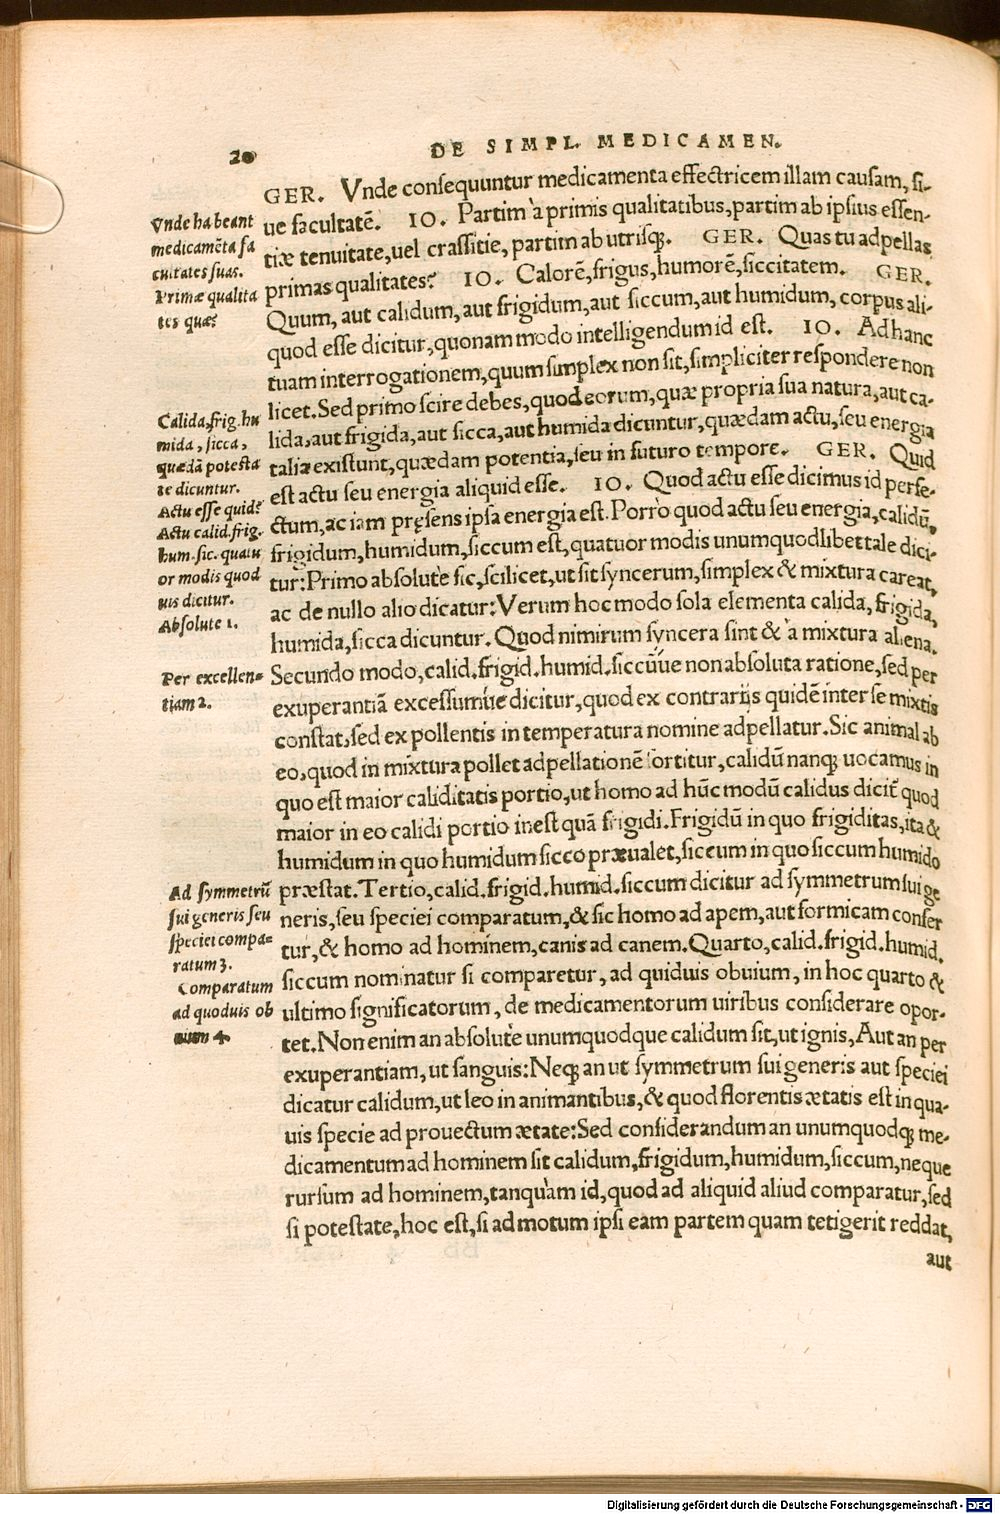 20
DE SIMPL. MEDICAMEN.
GER. Vnde consequuntur medicamenta effectricem illam causam, si-
ue facultatē. IO. Partim à primis qualitatibus, partim ab ipsius essen-
tiæ tenuitate, uel crassitie, partim ab utrisq;. GER. Quas tu adpellas
primas qualitates? IO. Calorē, frigus, humorē, siccitatem. GER.
Quum, aut calidum, aut frigidum, aut siccum, aut humidum, corpus ali-
quod esse dicitur, quonam modo intelligendum id est. IO. Ad hanc
tuam interrogationem, quum simplex non sit, simpliciter respondere non
licet. Sed primo scire debes, quod eorum, quæ propria sua natura, aut ca-
lida, aut frigida, aut sicca, aut humida dicuntur, quædam actu, seu energia
talia existunt, quædam potentia, seu in futuro tempore. GER. Quid
est actu seu energia aliquid esse. IO. Quod actu esse dicimus id perfe-
ctum, ac iam pręsens ipsa energia est. Porrò quod actu seu energia, calidū,
frigidum, humidum, siccum est, quatuor modis unumquodlibet tale dici-
tur: Primo absolutè sic, scilicet, ut sit syncerum, simplex & mixtura careat,
ac de nullo alio dicatur: Verum hoc modo sola elementa calida, frigida,
humida, sicca dicuntur. Quod nimirum syncera sint & à mixtura aliena.
Secundo modo, calid. frigid. humid. siccūue non absoluta ratione, sed per
exuperantiā excessumúe dicitur, quod ex contrarijs quidē inter se mixtis
constat, sed ex pollentis in temperatura nomine adpellatur. Sic animal ab
eo, quod in mixtura pollet adpellationē sortitur, calidū nanq; uocamus in
quo est maior caliditatis portio, ut homo ad hūc modū calidus dicit̃ quod
maior in eo calidi portio inest quā frigidi. Frigidū in quo frigiditas, ita &
humidum in quo humidum sicco præualet, siccum in quo siccum humido
præstat. Tertio, calid. frigid. humid. siccum dicitur ad symmetrum sui ge
neris, seu speciei comparatum, & sic homo ad apem, aut formicam confer
tur, & homo ad hominem, canis ad canem. Quarto, calid. frigid. humid.
siccum nominatur si comparetur, ad quiduis obuium, in hoc quarto &
ultimo significatorum, de medicamentorum uiribus considerare opor-
tet. Non enim an absolutè unumquodque calidum sit, ut ignis, Aut an per
exuperantiam, ut sanguis: Neq; an ut symmetrum sui generis aut speciei
dicatur calidum, ut leo in animantibus, & quod florentis ætatis est in qua-
uis specie ad prouectum ætate: Sed considerandum an unumquodq; me-
dicamentum ad hominem sit calidum, frigidum, humidum, siccum, neque
rursum ad hominem, tanquàm id, quod ad aliquid aliud comparatur, sed
si potestate, hoc est, si ad motum ipsi eam partem quam tetigerit reddat,
aut
Vnde habeant
medicamēta fa
cultates suas.
Primæ qualita
tes quæ?
Calida, frig. hu
mida, sicca,
quædā potesta
te dicuntur.
Actu esse quid?
Actu calid. frig.
hum. sic. quatu
or modis quod
uis dicitur.
Absolute 1.
Per excellen=
tiam 2.
Ad symmetrū
sui generis seu
speciei compa=
ratum 3.
Comparatum
ad quoduis ob
uium 4.
Digitalisierung gefördert durch die Deutsche Forschungsgemeinschaft - DFG